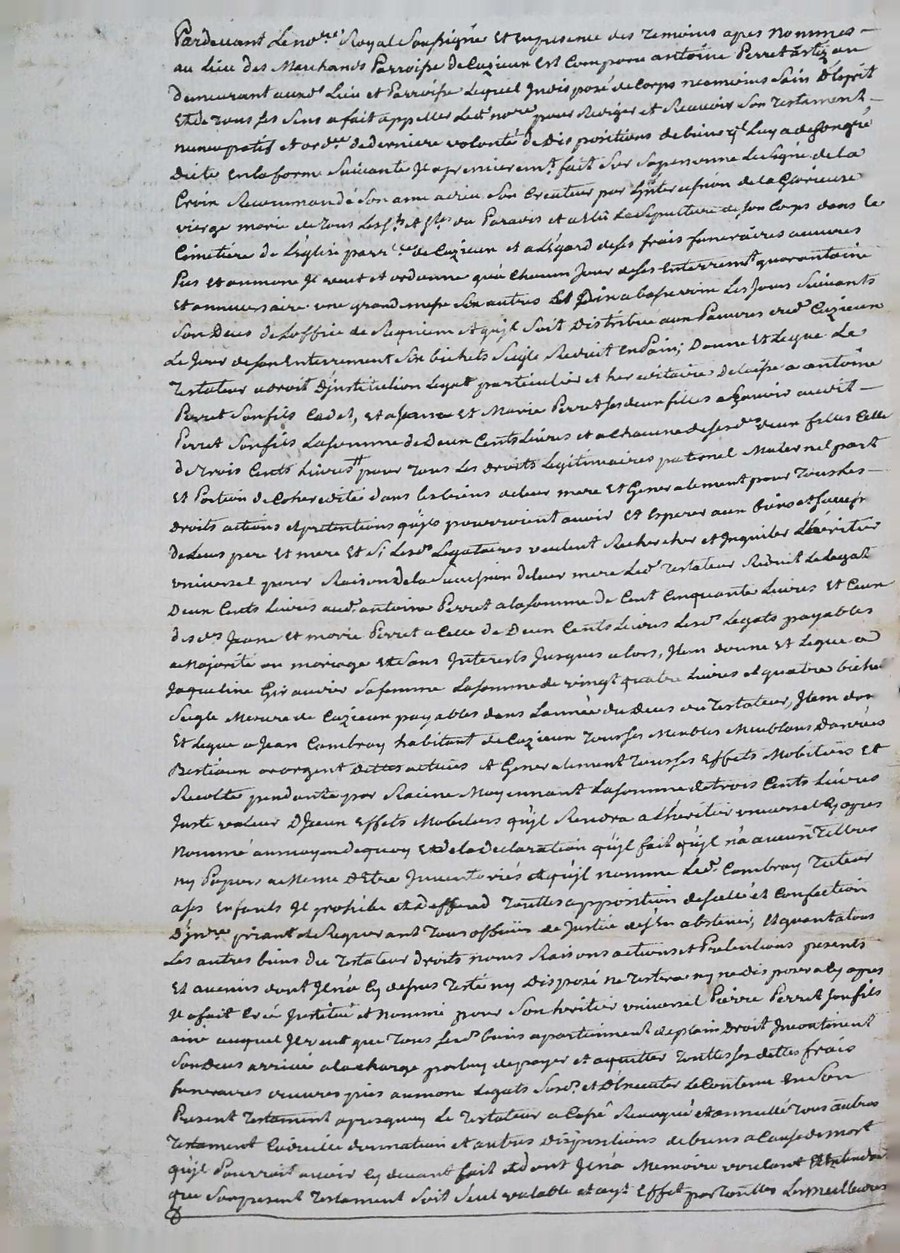 Pardevant Le no.re Royal Soussigné Et En presence des Temoins apres Nommes
au Lieu des Marchands Parroisse de Cuzieux Est Comparu antoine Perret artizan
Demeurant aux.d Lieu et Parroisse Lequel Indisposé de Corps neamoins Sain D'esprit
Et de Tous ses Sens a fait appeller Led.t no.re pour Rediger et Recevoir Son Testament
nuncupatif et ord.re de derniere volonté de dispositions de biens
Dicté En la forme Suivante Il a premierem.t fait Sur Sa personne Le Signe de la
Croix Recommandé Son ame a dieu Son Createur par L'intercession de la Glorieuse
vierge marie de Tous Les S.ts et S.tes du Paradis et a Elû La Sepulture de son Corps dans le
Cimetiere de L'Eglise parr.lle de Cuzieux et a L'égard de ses frais funeraires œuvres
Pies et aumone Il veut et ordonne qu'a Chacun Jour de ses Enterrem.t quarantaine
Et annuaire une grand messe Les Jours Suivants
Son Deces de L'office de Requiem et qu'il Soit Distribue aux Pauvres dud. Cuzieux
Le Jour de son Enterrement Six bichets Seigle Reduit En Pain; Donne Et Legue Le
Testateur a droit D'institution Legat particulier et hereditaire Delaisse a antoine
Perret Son fils Cadet, Et a Jeanne Et Marie Perret ses deux filles a Scavoir audit
Perret Son fils La somme de Deux Cents Livres et a Chacune de ses d.es deux filles Celle
de Trois Cents Livres pour Tous Les Droits Legitimaires paternel Maternel part
Et Portion de Coheredité dans les biens de leur mere Et Generalement pour Tous Les
droits actions et pretentions qu'ils pourroient avoir Et Esperer aux biens et succes.n
De Leurs pere Et mere Et Si Les d. Legataires veulent Rechercher et Inquieter L'héritier
universel pour Raison de la Succession de leur mere Led. Testateur Reduit Le legat
Deux Cents Livres aud. antoine Perret a la somme de Cent Cinquante Livres Et Ceux
des d.es Jeane Et marie Perret a Celle de Deux Cents Livres Les d. Legats payables
a Majorité ou mariage Et Sans Interests Jusques alors, Item donne Et Legue a
Jaqueline Giraudier Sa femme La somme de vingt quatre Livres et quatre bichets
Seigle Mesure de Cuzieux payables dans L'année du Deces du Testateur, Item donne
Et Legue a Jean Combray habitant de Cuzieux Tous ses Meubles Meublans Danrées
Bestiaux or argent Dettes actives Et Generalement Tous ses Effets Mobiliers Et
Recolte pendante par Racine Moyennant La somme de trois Cents Livres
Juste valeur D'iceux Effets Mobiliers qu'il Rendra a L'heritier universel Cy apres
Nommé au moyen de quoy Et de la Declaration qu'il fait qu'il n'a aucuns Titres
ny Papiers a Meme D'Etre Inventoriés Et qu'il nomme Led. Combray Tuteur
a ses Enfants Il prohibe et deffend Touttes apposition de scellé et Confection
D'inv.re priant et Requerant Tous officiers de Justice de s'En abstenir, Et quant a tous
Les autres biens du Testateur droits noms Raisons actions et Pretentions presents
Et avenir dont Il n'a Cy dessus Testé ny Disposé ne Testera ny ne disposera Cy apres
Il a fait Créé Institué et Nommé pour Son heritier universel Pierre Perret Son fils
ainé auquel Il veut que Tous Les d. biens apartiennent de plain Droit Incontinent
Son Deces arrivé a la charge par luy de payer et aquitter Touttes ses dettes frais
funeraires œuvres pies aumone Legats Sus d. et D'Executer Le Contenu En Son
Present Testament apres quoy Le Testateur a Cassé Revoqué et annullé Tous autres
Testament Codicille donnation et autres Dispositions de biens a Cause de mort
qu'il Pourrait avoir Cy devant fait Et dont Il n'a Memoire voulant Et Entendant
que Son present Testament Soit Seul valable et ayt Effet par Touttes Les meilleures